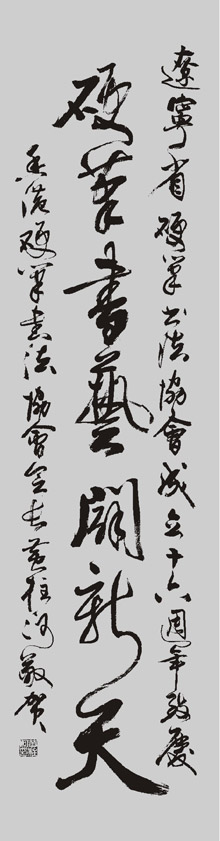 遼寧省硬筆書法協會成立十六週年致慶
硬筆書藝闢新天
香港硬筆書法協會會長黃桂河敬賀